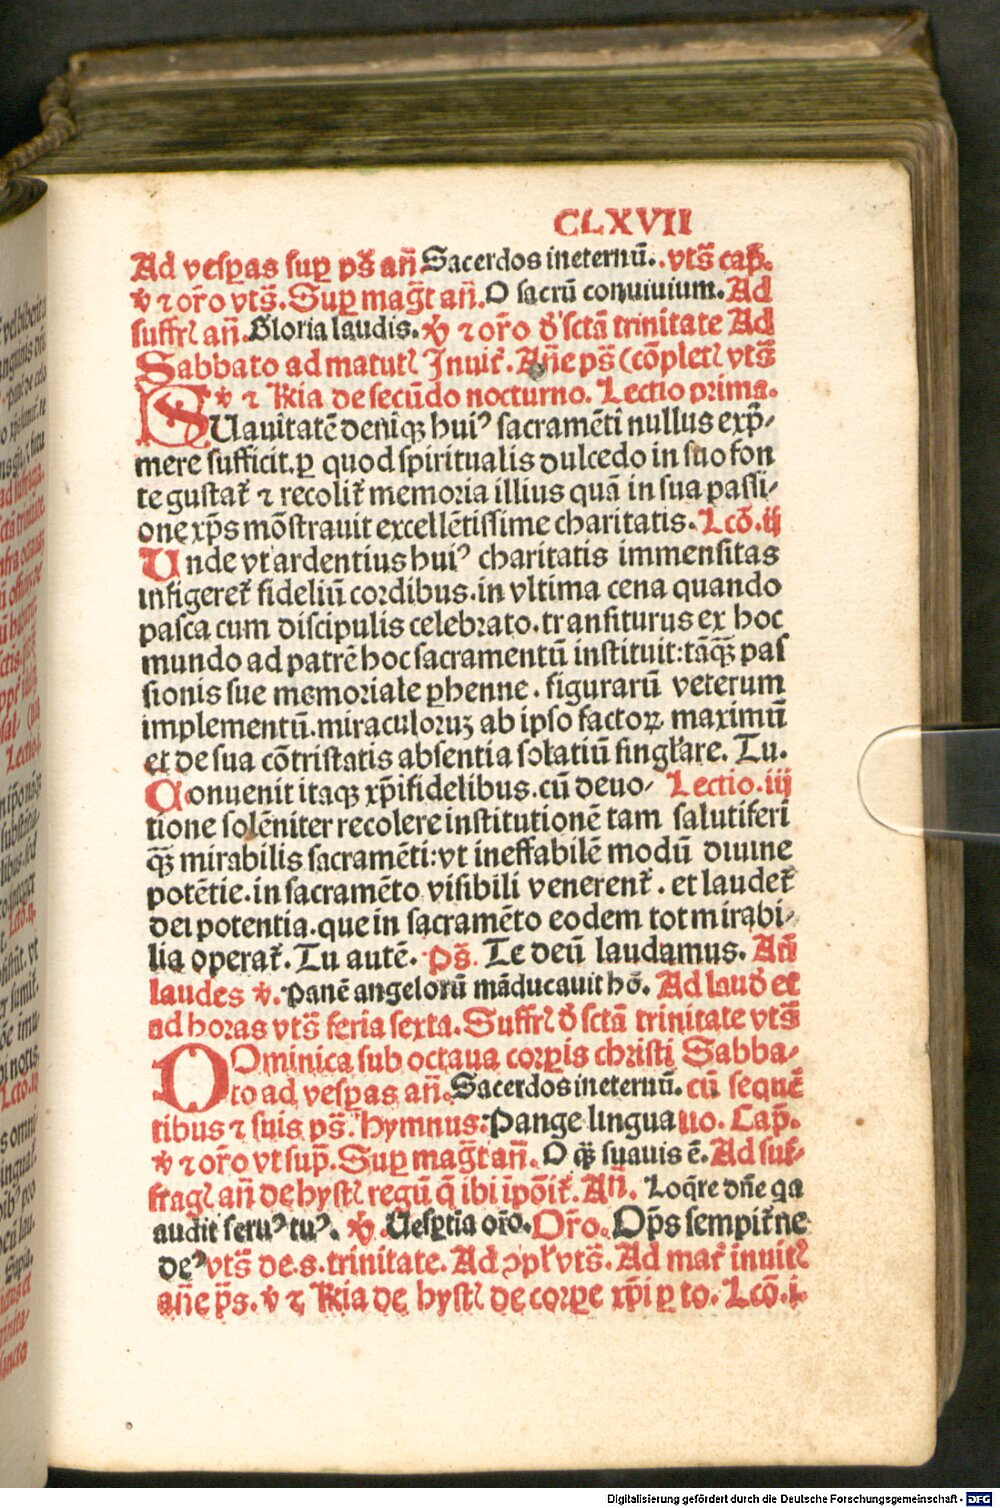 CLXVII
Ad vesꝑas suꝑ ps̄ an̄ Sacerdos in eternū. vts̄ cap̄.
℣ ⁊ or̄o vts̄. Suꝑ mag̃t an̄. O sacrū conuiuium. Ad
suffrꝭ an̄. Gloria laudis. ℣ ⁊ or̄o d̓ sctā trinitate Ad
Sabbato ad matutꝭ Inuit᷑. An̄e ps̄ (cōpletꝭ vts̄
℣ ⁊ Rͤia de secūdo nocturno. Lectio prima.
SUauitatē deniqꝫ huiꝰ sacramēti nullus exp̄⸗
mere sufficit. ꝑ quod spiritualis dulcedo in suo fon
te gustat᷑ ⁊ recolit᷑ memoria illius quā in sua passi⸗
one xp̄s mōstrauit excellētissime charitatis. Lcō. ij
Unde vt ardentius huiꝰ charitatis immensitas
infigeret᷑ fideliū cordibus. in vltima cena quando
pasca cum discipulis celebrato. transiturus ex hoc
mundo ad patrē hoc sacramentū instituit: tāqꝫ̄ pas
sionis sue memoriale ꝑhenne. figurarū veterum
implementū. miraculoruꝫ ab ipso factoꝝ maximū
et de sua cōtristatis absentia solatiū singl̄are. Tu.
Conuenit itaqꝫ xp̄ifidelibus. cū deuo⸗ Lectio. iij
tione solēniter recolere institutionē tam salutiferi
qꝫ̄ mirabilis sacramēti: vt ineffabilē modū diuine
potētie. in sacramēto visibili venerent᷑. et laudet᷑
dei potentia. que in sacramēto eodem tot mirabi⸗
lia operat᷑. Tu autē. ps̄. Te deū laudamus. An̄
laudes ℣. Panē angelorū māducauit hō. Ad laud̓ et
ad horas vts̄ feria sexta. Suffrꝭ d̓ sctā trinitate vts̄
DOminica sub octaua corꝑis christi Sabba⸗
to ad vesꝑas an̄. Sacerdos in eternū. cū sequē
tibus ⁊ suis ps̄. Hymnus. Pange lingua uo. Cap̄.
℣ ⁊ or̄o vt sup̄. Suꝑ mag̃t an̄. O qꝫ̄ suauis ē. Ad suf⸗
fragꝭ an̄ de hystꝭ regū q̄ ibi ip̄oīt᷑. An̄. Loq̄re dn̄e qa
audit seruꝰ tuꝰ. ℣. Uesꝑtia or̄o. Or̄o. Op̄s sempit᷑ne
deꝰ vts̄ de. s. trinitate. Ad ↄpl̄ vts̄. Ad mat᷑ inuitꝭ
an̄e p̄s. ℣ ⁊ Rͤia de hystꝭ de corꝑe xp̄i ꝑ to. Lcō. i.
Digitalisierung gefördert durch die Deutsche Forschungsgemeinschaft - DFG